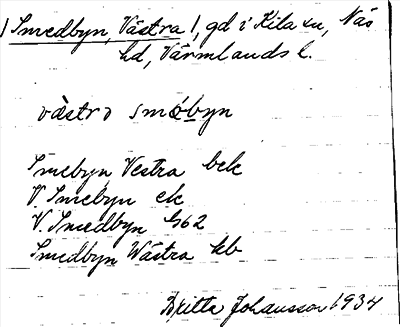 / Smedbyn, Västra /, gd i Kila sn, Näs
hd, Värmlands l.
västrɔ smo̍byn
Smebyn Vestra bek
V. Smebyn ek
V. Smedbyn G62
Smedbyn Wästra kb
Britta Johansson 1934